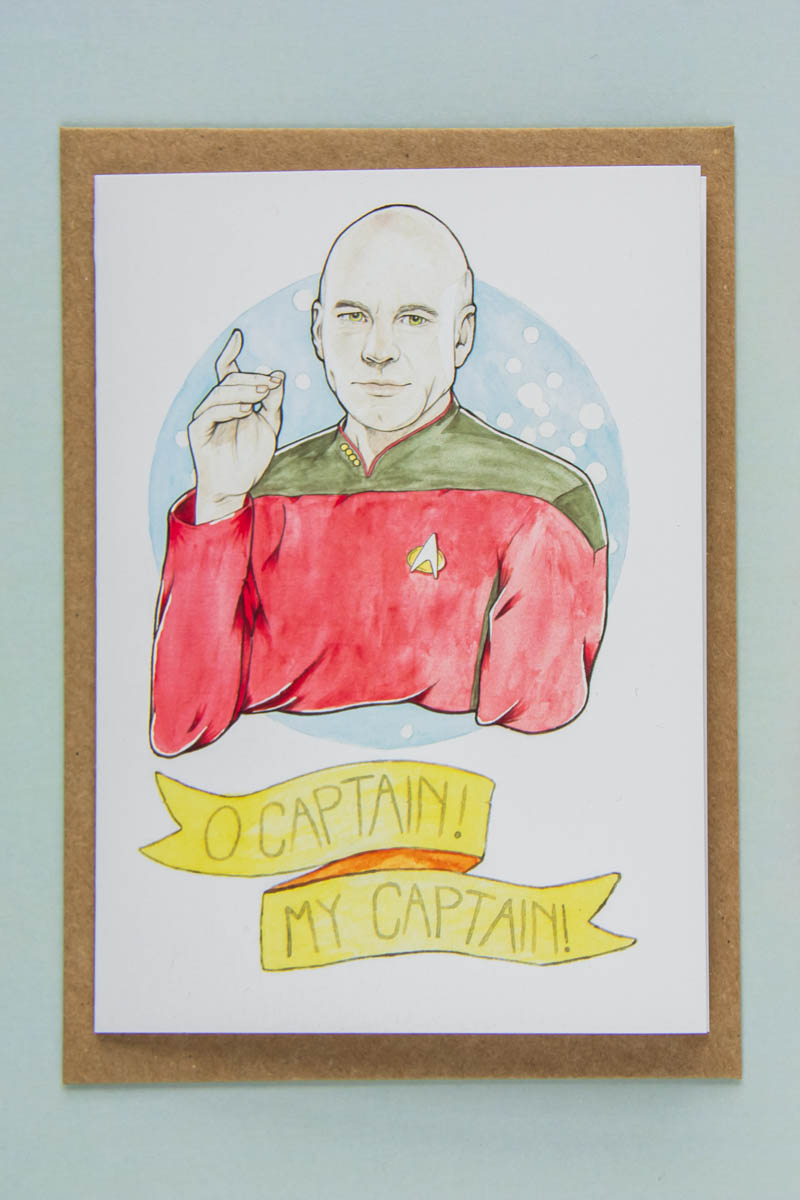 O CAPTAIN!
MY CAPTAIN!